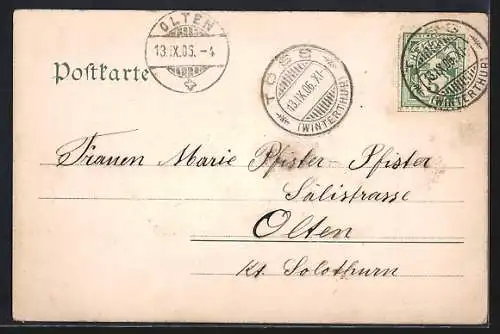 OLTEN
13.IX.06.-4
Postkarte
TÖSS
13.IX.06.XI-
(WINTERTHUR)
TÖSS
13.IX.06.XI-
(WINTERTHUR)
5
Frauen Marie Pfister-Pfister
Sälistrasse
Olten
Kt. Solothurn